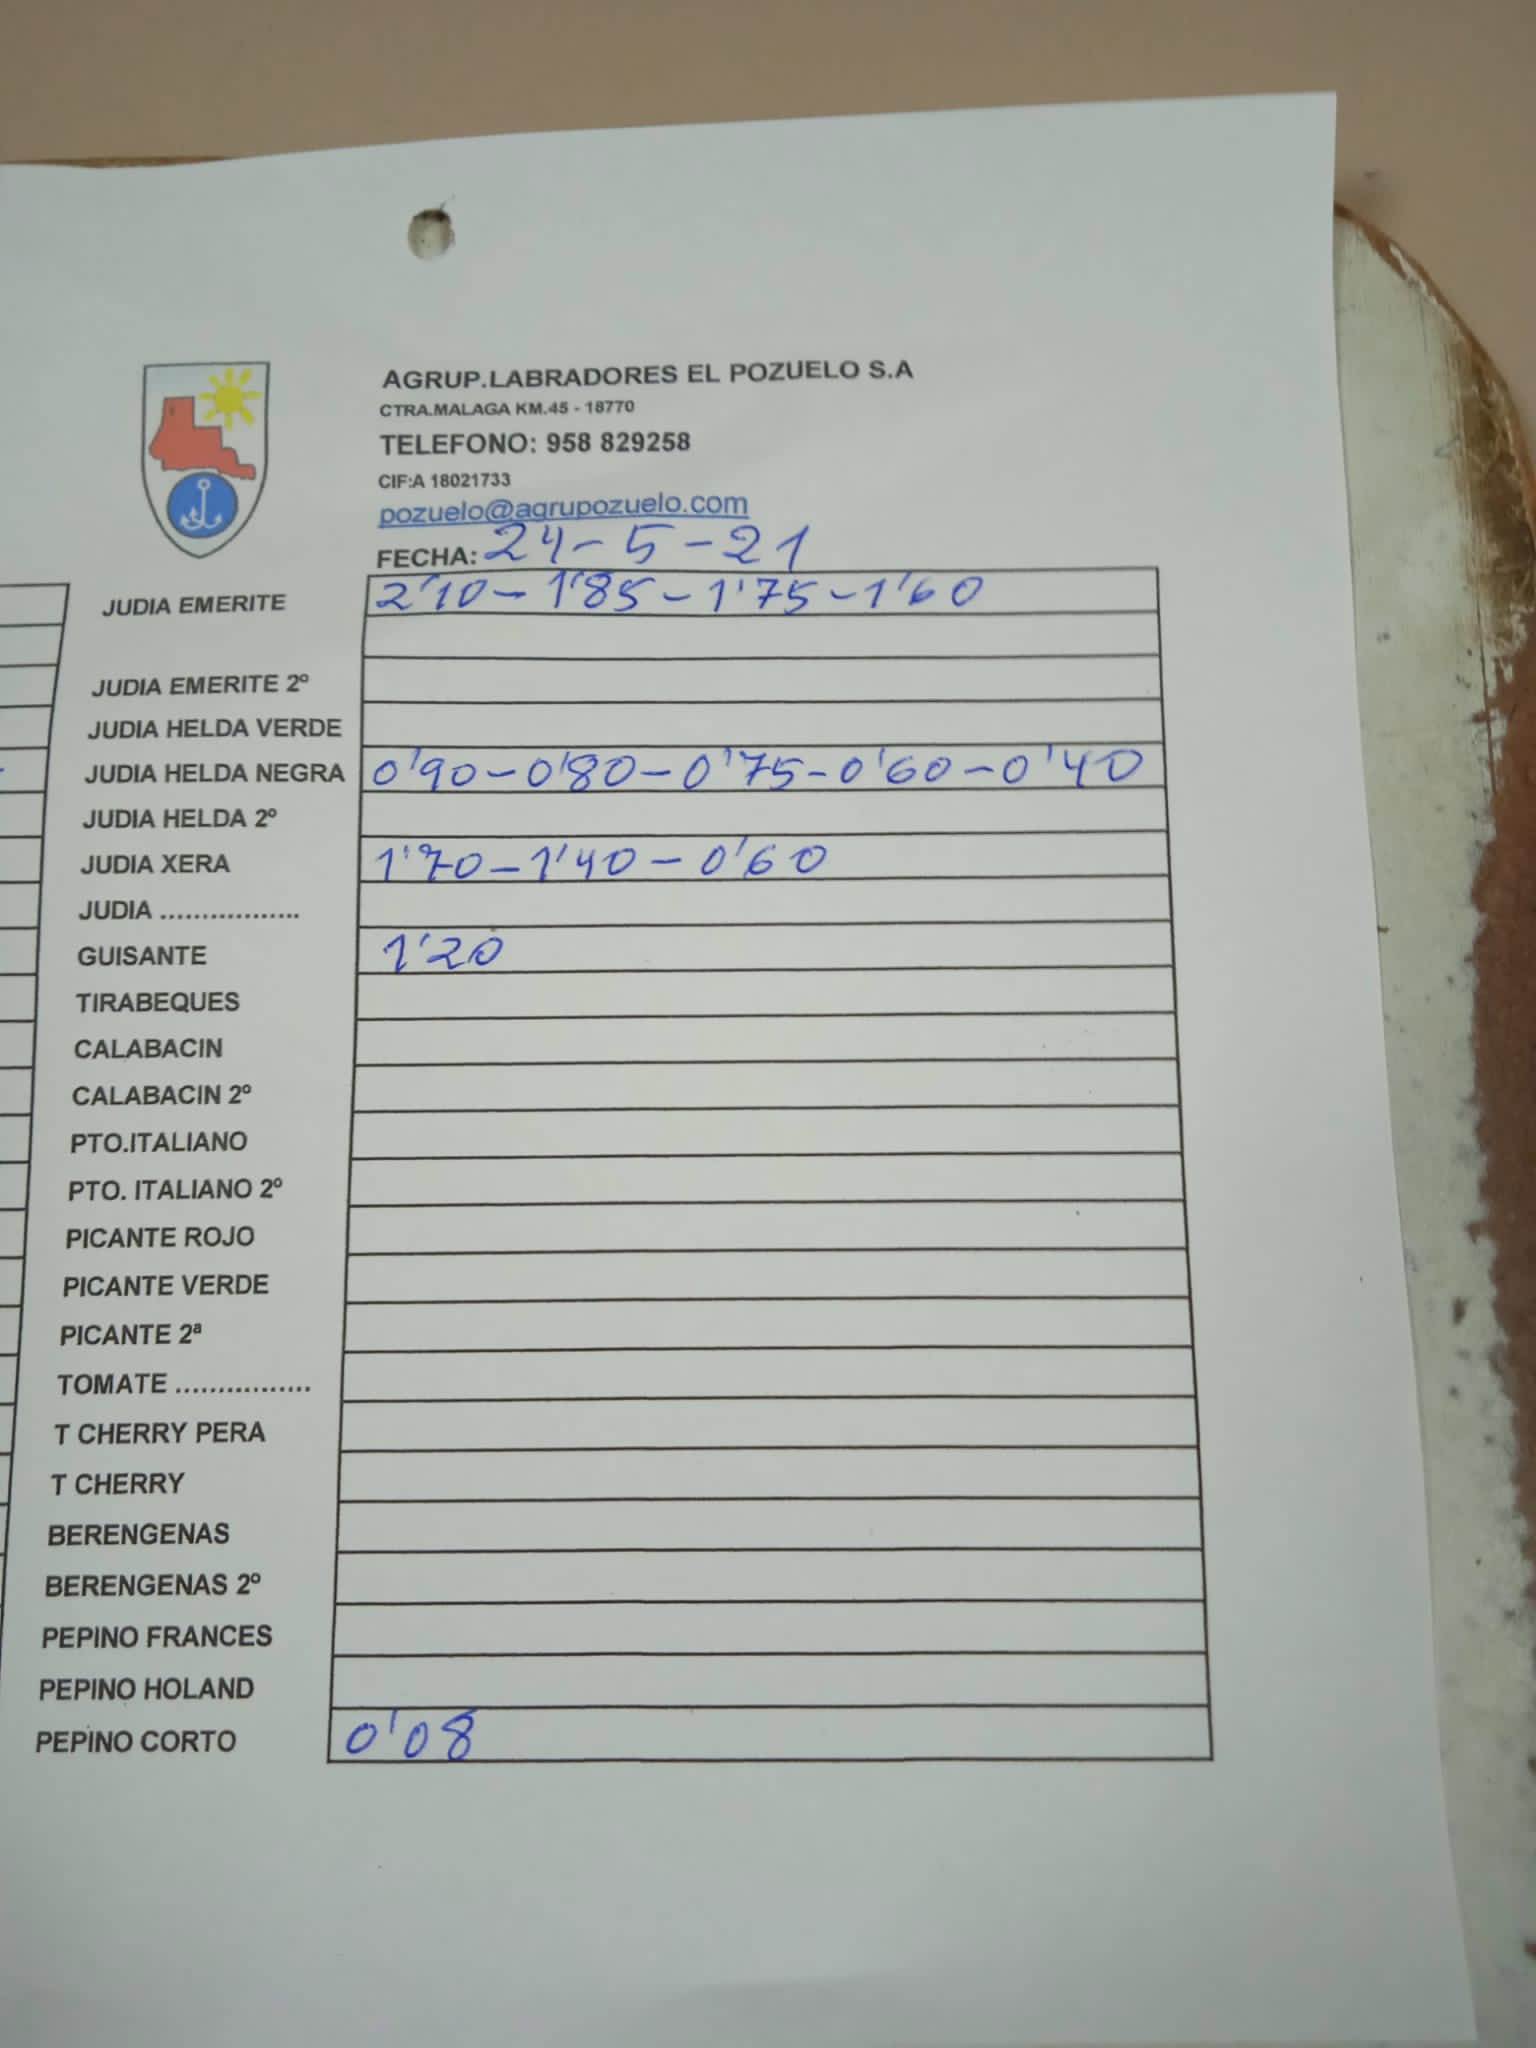 AGRUP.LABRADORES EL POZUELO S.A
CTRA.MALAGA KM.45 - 18770
TELEFONO: 958 829258
CIF:A 18021733
pozuelo@agrupozuelo.com
FECHA: 24-5-21
JUDIA EMERITE 2'10-1'85-1'75-1'60
JUDIA EMERITE 2º
JUDIA HELDA VERDE
JUDIA HELDA NEGRA 0'90-0'80-0'75-0'60-0'40
JUDIA HELDA 2º
JUDIA XERA 1'70-1'40-0'60
JUDIA .................
GUISANTE 1'20
TIRABEQUES
CALABACIN
CALABACIN 2º
PTO.ITALIANO
PTO. ITALIANO 2º
PICANTE ROJO
PICANTE VERDE
PICANTE 2ª
TOMATE ................
T CHERRY PERA
T CHERRY
BERENGENAS
BERENGENAS 2º
PEPINO FRANCES
PEPINO HOLAND
PEPINO CORTO 0'08